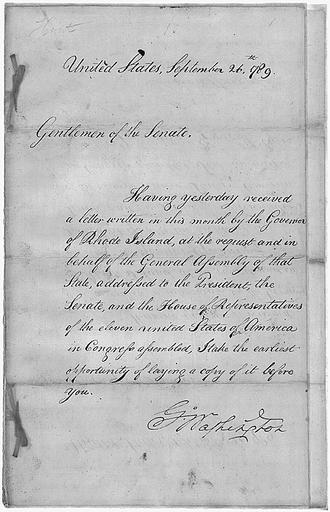 United States, September 26.th 1789.
Gentlemen of the Senate,
Having yesterday received
a letter written in this month by the Governor
of Rhode Island, at the request and in
behalf of the General Assembly of that
State, addressed to the President, the
Senate, and the House of Representatives
of the eleven united States of America
in Congress assembled, I take the earliest
opportunity of laying a copy of it before
you.
Go: Washington